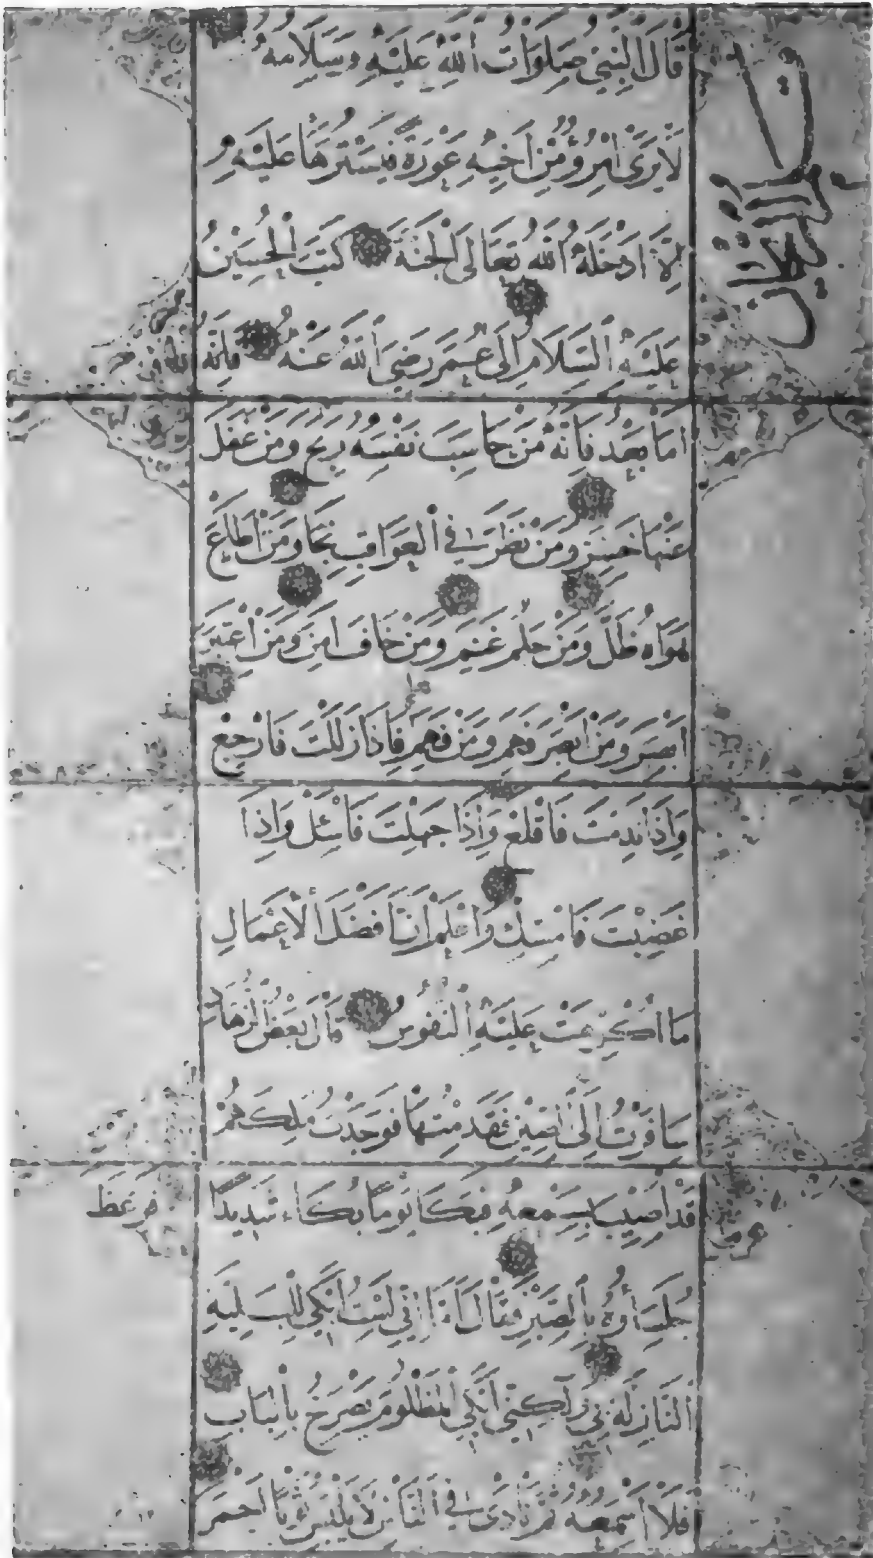 قَالَ النَّبِيُّ صَلَوَاتُ اللَّهِ عَلَيْهِ وَسَلَامُهُ
لَا يَرَى امْرُؤٌ مِنْ أَخِيهِ عَوْرَةً فَيَسْتُرُهَا عَلَيْهِ
إِلَّا أَدْخَلَهُ اللَّهُ تَعَالَى الْجَنَّةَ كَتَبَ الْحُسَيْنُ
عَلَيْهِ السَّلَامُ إِلَى عُمَرَ رَضِيَ اللَّهُ عَنْهُ
أَمَّا بَعْدُ فَإِنَّهُ مَنْ حَاسَبَ نَفْسَهُ رَبِحَ وَمَنْ غَفَلَ
عَنْهَا خَسِرَ وَمَنْ نَظَرَ فِي الْعَوَاقِبِ نَجَا وَمَنْ أَطَاعَ
هَوَاهُ ضَلَّ وَمَنْ حَلُمَ غَنِمَ وَمَنْ خَافَ أَمِنَ وَمَنِ اعْتَبَرَ
أَبْصَرَ وَمَنْ أَبْصَرَ فَهِمَ وَمَنْ فَهِمَ فَإِذَا زَلَلْتَ فَارْجِعْ
وَإِذَا نَدِمْتَ فَاقْلَعْ وَإِذَا جَهِلْتَ فَاسْئَلْ وَإِذَا
غَضِبْتَ فَامْسِكْ وَاعْلَمْ أَنَّ أَفْضَلَ الْأَعْمَالِ
مَا أُكْرِهَتْ عَلَيْهِ النُّفُوسُ قَالَ بَعْضُ الزُّهَّادِ
سَافَرْتُ إِلَى الصِّينِ فَقَدِمْتُهَا فَوَجَدْتُ مَلِكَهُمْ
قَدْ أُصِيبَ بِسَمْعِهِ فَبَكَا يَوْمًا بُكَاءً شَدِيدًا
بِالصَّبْرِ فَقَالَ أَمَا إِنِّي لَسْتُ أَبْكِي لِلْبَلِيَّةِ
النَّازِلَةِ بِي وَلَكِنِّي أَبْكِي لِمَظْلُومٍ يَصْرُخُ بِالْبَابِ
فَلَا أَسْمَعُهُ ثُمَّ نَادَى فِي النَّاسِ لَا يَلْبَسْ ثَوْبًا أَحْمَرَ